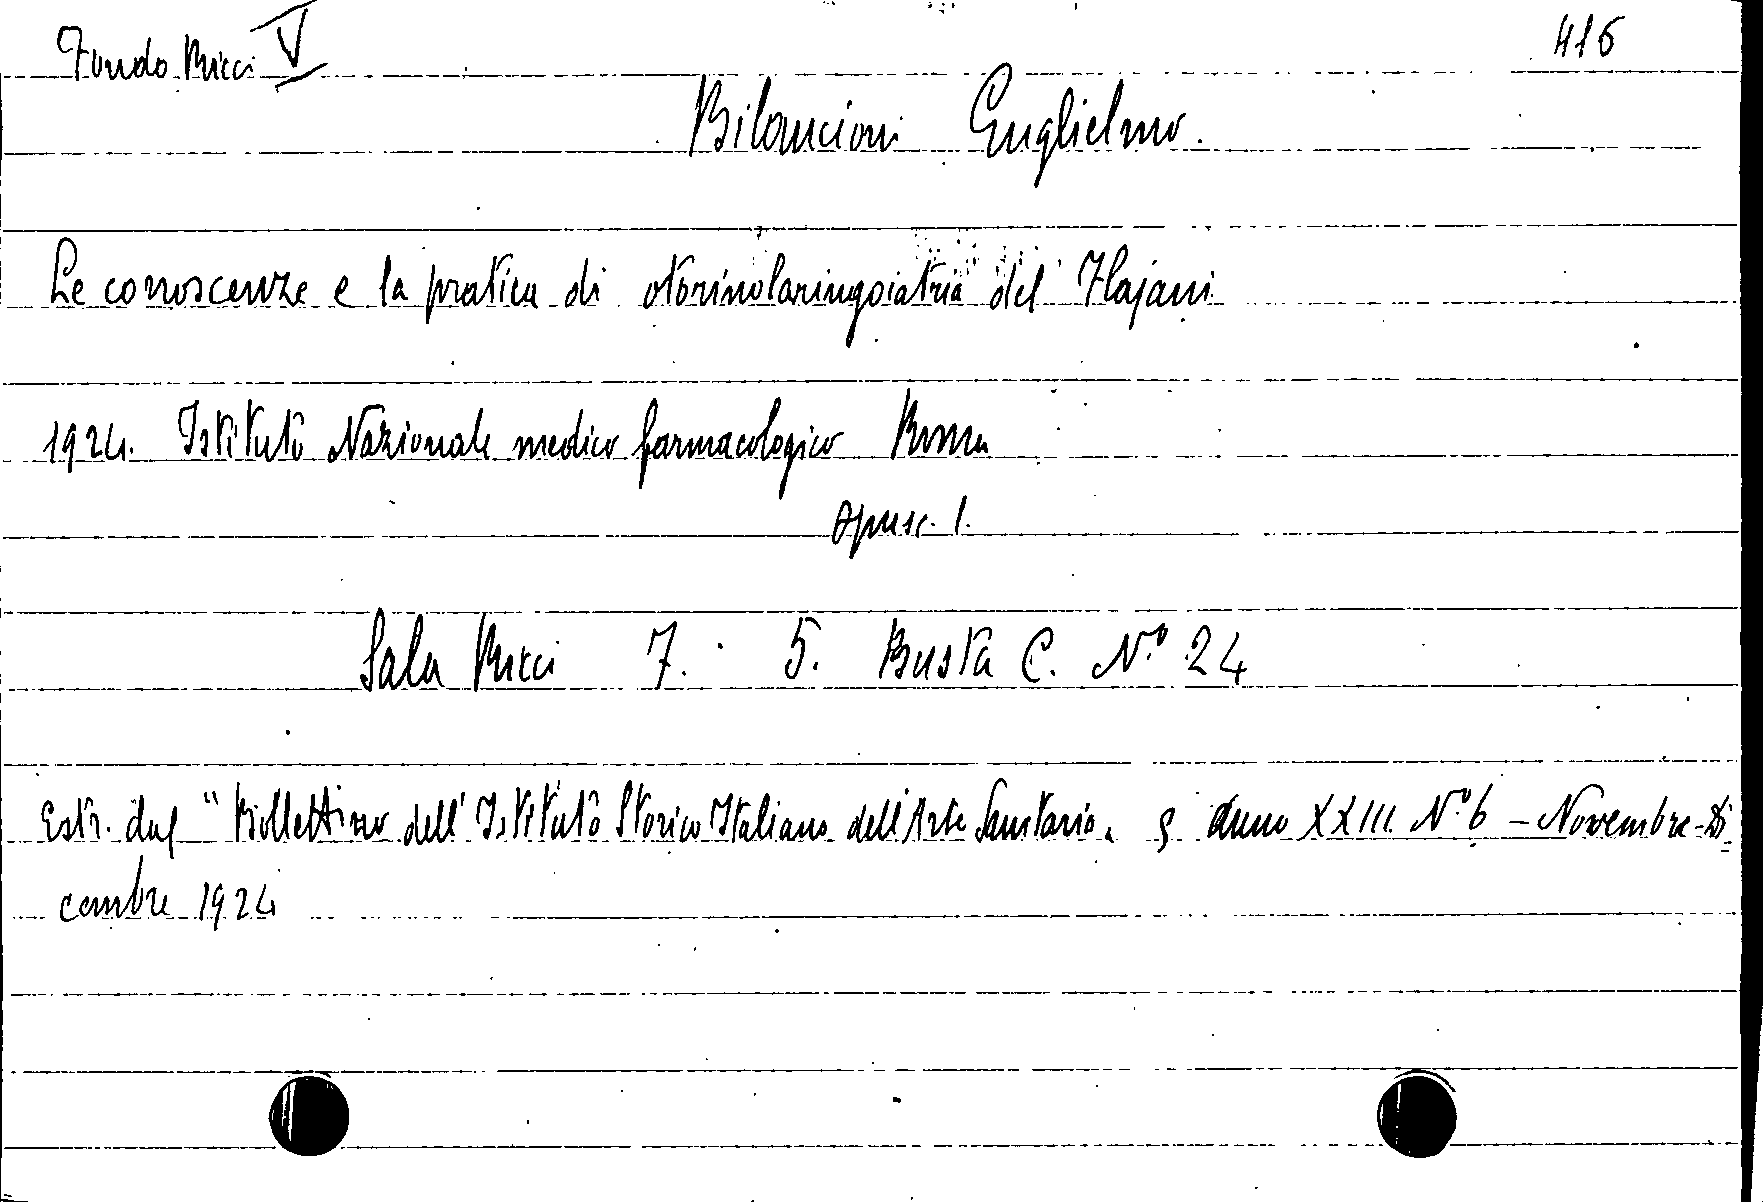 Fondo Ricci V 416
Bilancioni Guglielmo.
Le conoscenze e la pratica di otorinolaringoiatria del Flajani
1924. Istituto Nazionale medico farmacologico Roma
Opusc. 1.
Sala Ricci 7. 5. Busta C. N.º 24
Estr. dal "Bollettino dell'Istituto Storico Italiano dell'Arte Sanitaria" anno XXIII N.º 6 - Novembre-Di
cembre 1924